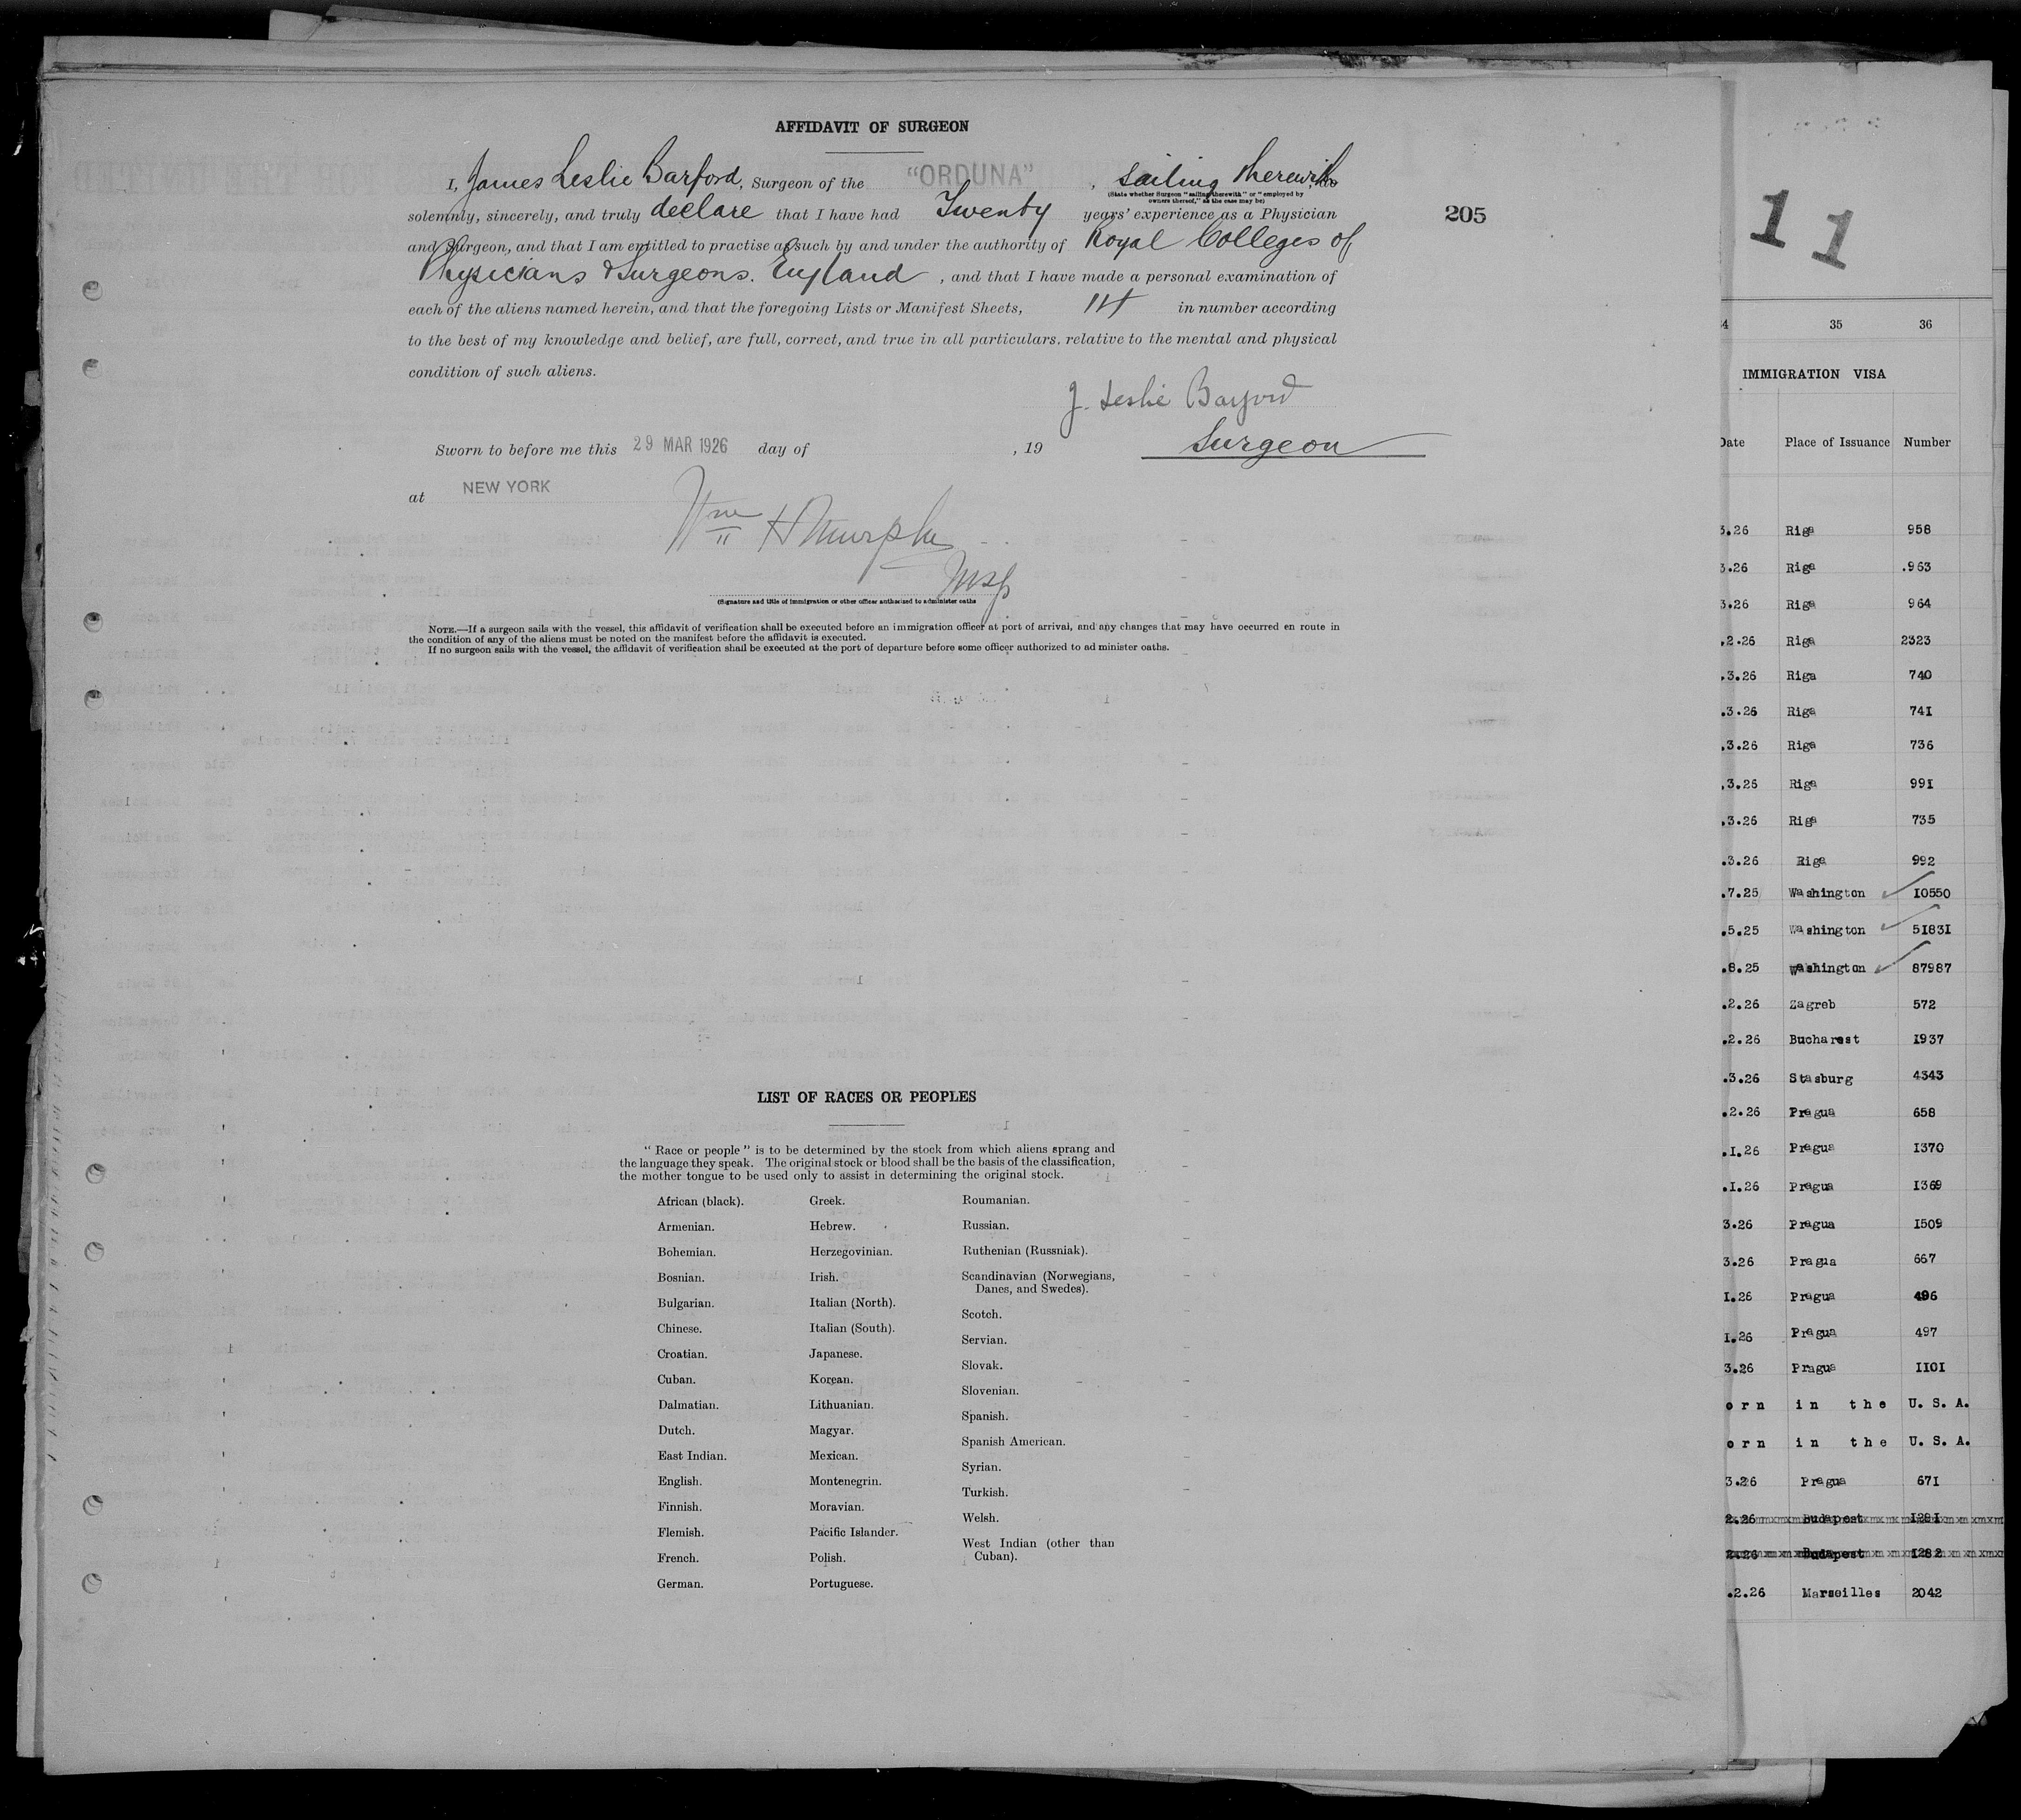 AFFIDAVIT OF SURGEON
I, James Leslie Barford, Surgeon of the "ORDUNA", sailing therewith, do
(State whether Surgeon "sailing therewith" or "employed by
owners thereof," as the case may be)
solemnly, sincerely, and truly declare that I have had Twenty years' experience as a Physician
205
and Surgeon, and that I am entitled to practise as such by and under the authority of Royal Colleges of
Physicians & Surgeons. England, and that I have made a personal examination of
each of the aliens named herein, and that the foregoing Lists or Manifest Sheets, in number according
to the best of my knowledge and belief, are full, correct, and true in all particulars. relative to the mental and physical
condition of such aliens.
J. Leslie Barford
Surgeon
Sworn to before me this 29 MAR 1926 day of , 19
at NEW YORK
Wm H Murphy
Insp
(Signature and title of immigration or other officer authorized to administer oaths
NOTE.—If a surgeon sails with the vessel, this affidavit of verification shall be executed before an immigration officer at port of arrival, and any changes that may have occurred en route in
the condition of any of the aliens must be noted on the manifest before the affidavit is executed.
If no surgeon sails with the vessel, the affidavit of verification shall be executed at the port of departure before some officer authorized to ad minister oaths.
LIST OF RACES OR PEOPLES
"Race or people" is to be determined by the stock from which aliens sprang and
the language they speak. The original stock or blood shall be the basis of the classification,
the mother tongue to be used only to assist in determining the original stock.
African (black).
Armenian.
Bohemian.
Bosnian.
Bulgarian.
Chinese.
Croatian.
Cuban.
Dalmatian.
Dutch.
East Indian.
English.
Finnish.
Flemish.
French.
German.
Greek.
Hebrew.
Herzegovinian.
Irish.
Italian (North).
Italian (South).
Japanese.
Korean.
Lithuanian.
Magyar.
Mexican.
Montenegrin.
Moravian.
Pacific Islander.
Polish.
Portuguese.
Roumanian.
Russian.
Ruthenian (Russniak).
Scandinavian (Norwegians,
Danes, and Swedes).
Scotch.
Servian.
Slovak.
Slovenian.
Spanish.
Spanish American.
Syrian.
Turkish.
Welsh.
West Indian (other than
Cuban).
11
4 35 36
IMMIGRATION VISA
Date Place of Issuance Number
3.26 Riga 958
3.26 Riga .963
3.26 Riga 964
.2.26 Riga 2323
.3.26 Riga 740
.3.26 Riga 741
.3.26 Riga 736
.3.26 Riga 991
.3.26 Riga 735
.3.26 Riga 992
.7.25 Washington 10550
.5.25 Washington 51831
.8.25 Washington 87987
.2.26 Zagreb 572
.2.26 Bucharest 1937
.3.26 Stasburg 4343
.2.26 Pragua 658
.1.26 Pragua 1370
.1.26 Pragua 1369
3.26 Pragua 1509
3.26 Pragua 667
1.26 Pragua 496
1.26 Pragua 497
3.26 Pragua 1101
orn in the U. S. A.
orn in the U. S. A.
3.26 Pragua 671
2.26 Budapest 1281
2.26 Budapest 1282
.2.26 Marseilles 2042